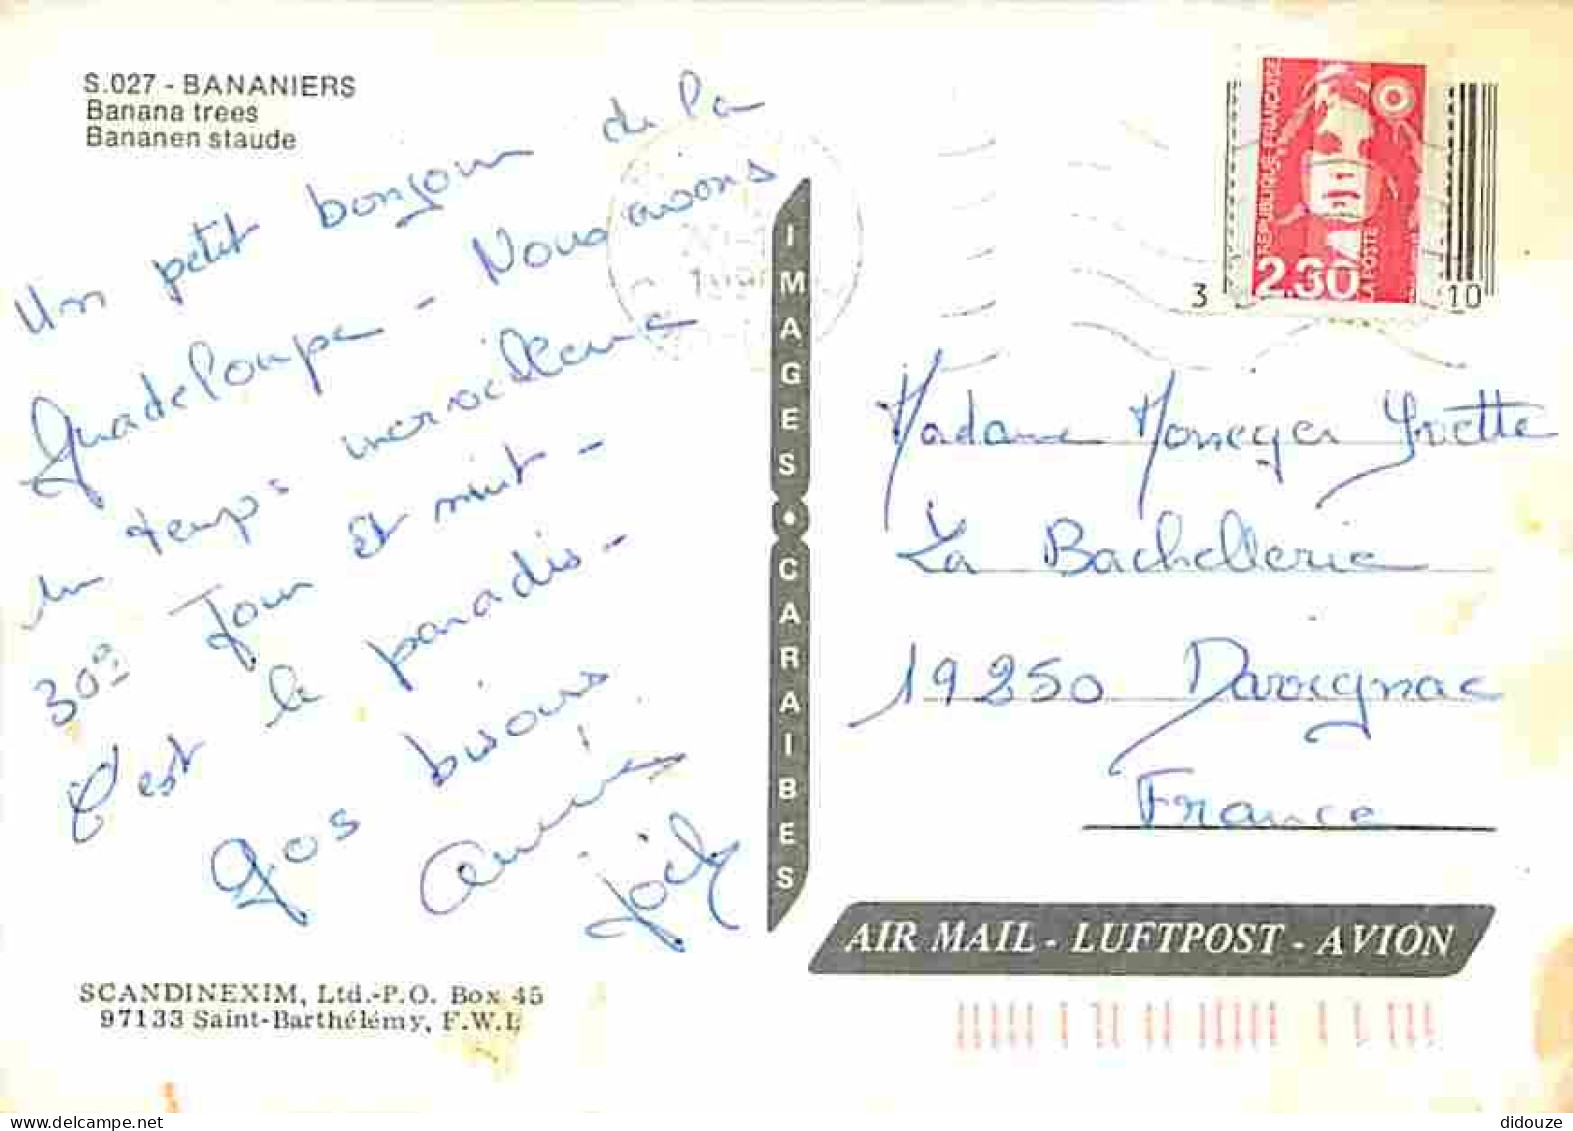 S.027 - BANANIERS
Banana trees
Bananen staude
Un petit bonjour de la
Guadeloupe - Nous avons
un temps merveilleux
30° Jour et nuit -
C'est le paradis -
Gos bisous
Annie
Jacky
IMAGES • CARAIBES
REPUBLIQUE FRANÇAISE
2.30
LA POSTE
3 10
Madame Monegер Yvette
La Bachellerie
19250 Davignac
France
AIR MAIL - LUFTPOST - AVION
SCANDINEXIM, Ltd.-P.O. Box 45
97133 Saint-Barthélémy, F.W.I.
didouze